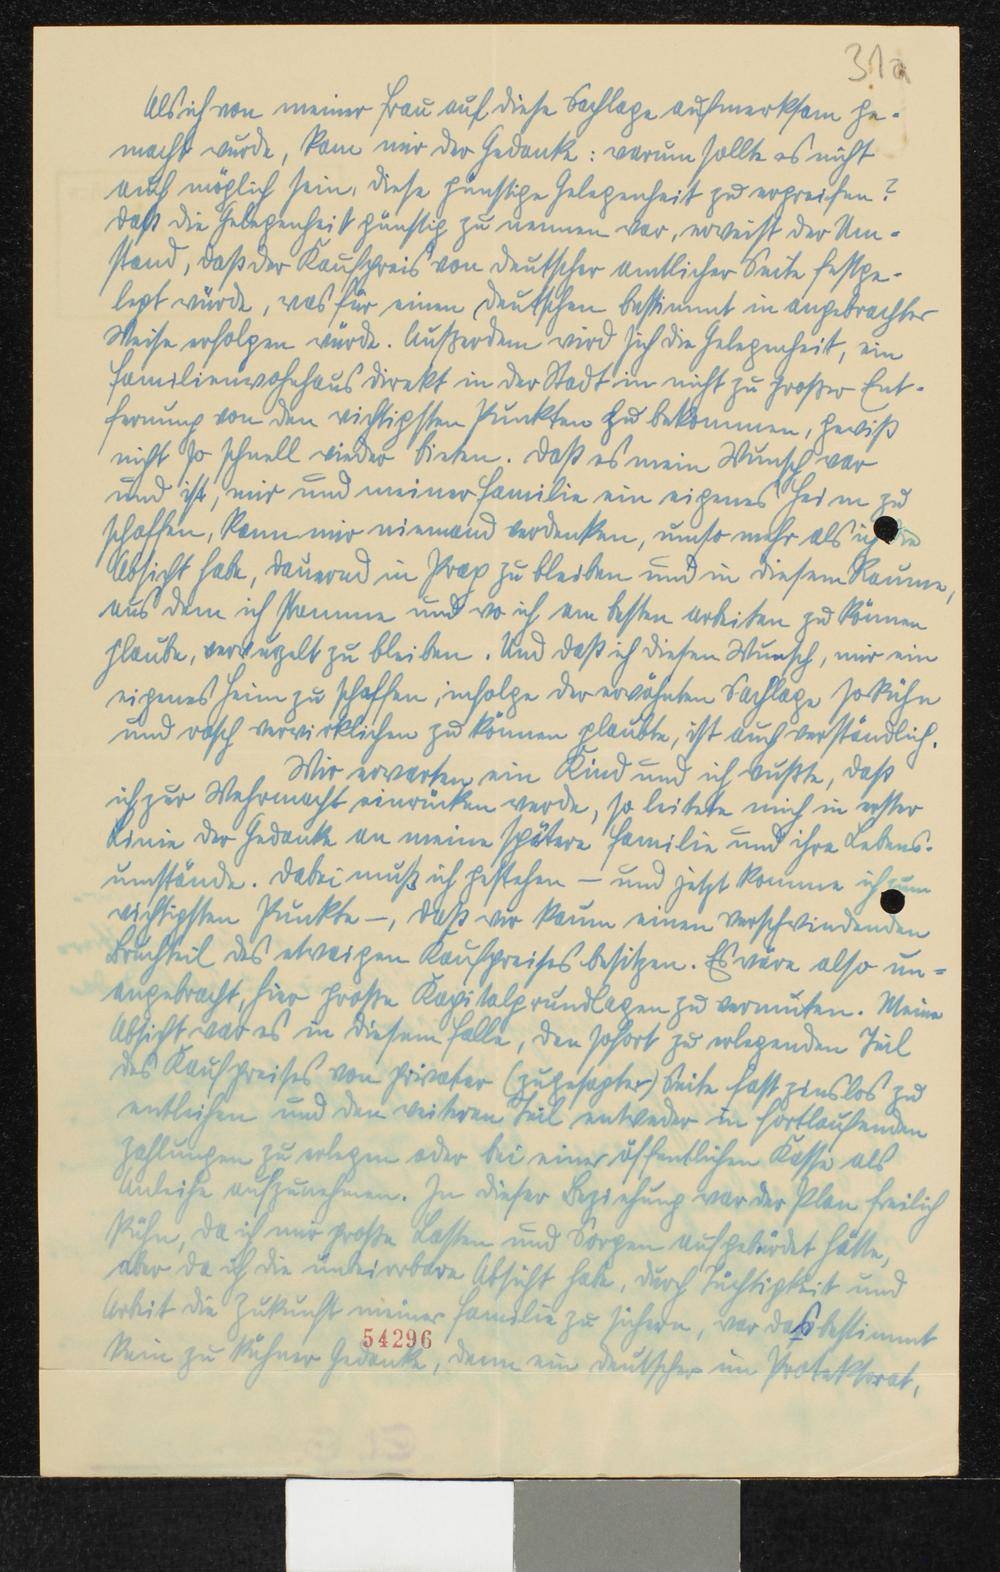 31a
Als ich von meiner Frau auf diese Sachlage aufmerksam ge-
macht wurde, kam mir der Gedanke: warum sollte es nicht
auch möglich sein, diese günstige Gelegenheit zu ergreifen?
Daß die Gelegenheit günstig zu nennen war, erweist der Um-
stand, daß der Kaufpreis von deutscher amtlicher Seite festge-
legt würde, was für einen Deutschen bestimmt in angebrachter
Weise erfolgen würde. Außerdem wird sich die Gelegenheit, ein
Familienwohnhaus direkt in der Stadt in nicht zu großer Ent-
fernung von den wichtigsten Punkten zu bekommen, gewiß
nicht so schnell wieder bieten. Daß es mein Wunsch war
und ist, mir und meiner Familie ein eigenes Heim zu
schaffen, kann mir niemand verdenken, umso mehr als ich die
Absicht habe, dauernd in Prag zu bleiben und in diesem Raume,
aus dem ich stamme und wo ich am besten arbeiten zu können
glaube, verwurzelt zu bleiben. Und daß ich diesen Wunsch, mir ein
eigenes Heim zu schaffen, infolge der erwähnten Sachlage so kühn
und rasch verwirklichen zu können glaubte, ist auch verständlich.
Wir erwarten ein Kind und ich wußte, daß
ich zur Wehrmacht einrücken werde, so leitete mich in erster
Linie der Gedanke an meine spätere Familie und ihre Lebens-
umstände. Dabei muß ich gestehen – und jetzt komme ich zum
wichtigsten Punkte –, daß wir kaum einen verschwindenden
Bruchteil des etwaigen Kaufpreises besitzen. Es wäre also un-
angebracht, hier große Kapitalgrundlagen zu vermuten. Meine
Absicht war es in diesem Falle, den sofort zu erlegenden Teil
des Kaufpreises von privater (zugesagter) Seite fast zinslos zu
entleihen und den weiteren Teil entweder in fortlaufenden
Zahlungen zu erlegen oder bei einer öffentlichen Kasse als
Anleihe aufzunehmen. In dieser Beziehung war der Plan freilich
kühn, da ich mir große Lasten und Sorgen aufgebürdet hätte,
aber da ich die unbeirrbare Absicht habe, durch Tüchtigkeit und
Arbeit die Zukunft meiner Familie zu sichern, war das bestimmt
kein zu kühner Gedanke, denn ein Deutscher im Protektorat,
54296